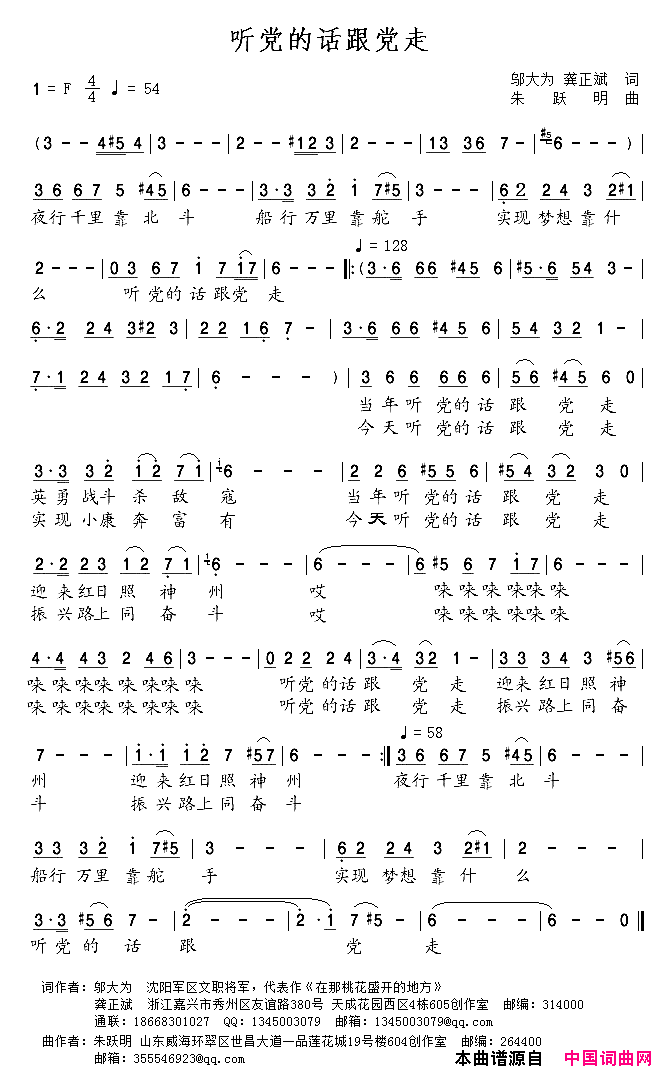 听党的话跟党走
1 = F 4/4 ♩= 54
邬大为 龚正斌 词
朱 跃 明 曲
(3 - - 4#5 4 | 3 - - - | 2 - - #12 3 | 2 - - - | 13 36 7 - | #5 6 - - - )
3 6 6 7 5 #45 | 6 - - - | 3·3 3 2 1 7#5 | 3 - - - | 62 24 3 2#1 |
夜行千里靠北斗 船行万里靠舵手 实现梦想靠什
♩= 128
2 - - - | 0 3 6 7 1 7 17 | 6 - - - ‖: (3·6 66 #45 6 | #5·6 54 3 - |
么 听党的话跟党走
6·2 24 3#2 3 | 22 16 7 - | 3·6 66 #45 6 | 54 32 1 - |
7·1 24 32 17 | 6 - - - ) | 3 6 6 66 6 | 56 #45 6 0 |
当年听党的话跟党走
今天听党的话跟党走
3·3 32 12 71 | 6 - - - | 2 2 6 #55 6 | #54 32 3 0 |
英勇战斗杀敌寇 当年听党的话跟党走
实现小康奔富有 今天听党的话跟党走
2·2 23 12 71 | 6 - - - | 6 - - - | 6 #5 6 7 17 | 6 - - - |
迎来红日照神州 哎 唻唻唻唻唻唻
振兴路上同奋斗 哎 唻唻唻唻唻唻
4·4 43 2 46 | 3 - - - | 0 2 22 24 | 3·4 32 1 - | 33 34 3 #56 |
唻唻唻唻唻唻唻唻 听党的话跟党走 迎来红日照神
唻唻唻唻唻唻唻唻 听党的话跟党走 振兴路上同奋
♩= 58
7 - - - | 1·1 12 7 #57 | 6 - - - :‖ 3 6 67 5 #45 | 6 - - - |
州 迎来红日照神州 夜行千里靠北斗
斗 振兴路上同奋斗
3 3 3 2 1 7#5 | 3 - - - | 62 24 3 2#1 | 2 - - - |
船行万里靠舵手 实现梦想靠什么
3·3 #56 7 - | 2 - - - | 2·1 7 #5 | 6 - - - | 6 - - - ‖
听党的话跟党走
词作者:邬大为 沈阳军区文职将军,代表作《在那桃花盛开的地方》
龚正斌 浙江嘉兴市秀州区友谊路380号 天成花园西区4栋605创作室 邮编:314000
通联:18668301027 QQ:1345003079 邮箱:1345003079@qq.com
曲作者:朱跃明 山东威海环翠区世昌大道一品莲花城19号楼604创作室 邮编:264400
邮箱:355546923@qq.com
本曲谱源自 中国词曲网